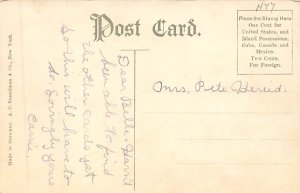 N47
Post Card.
Place the Stamp Here
One Cent for
United States, and
Island Possessions,
Cuba, Canada and
Mexico.
Two Cents.
For Foreign.
Mrs. Pete
Dear Belle, Havn't
been able to find
the other cards yet
So this will have to
do. Lovingly yours
Carrie.
Made in Germany. A. C. Bosselman & Co., New York